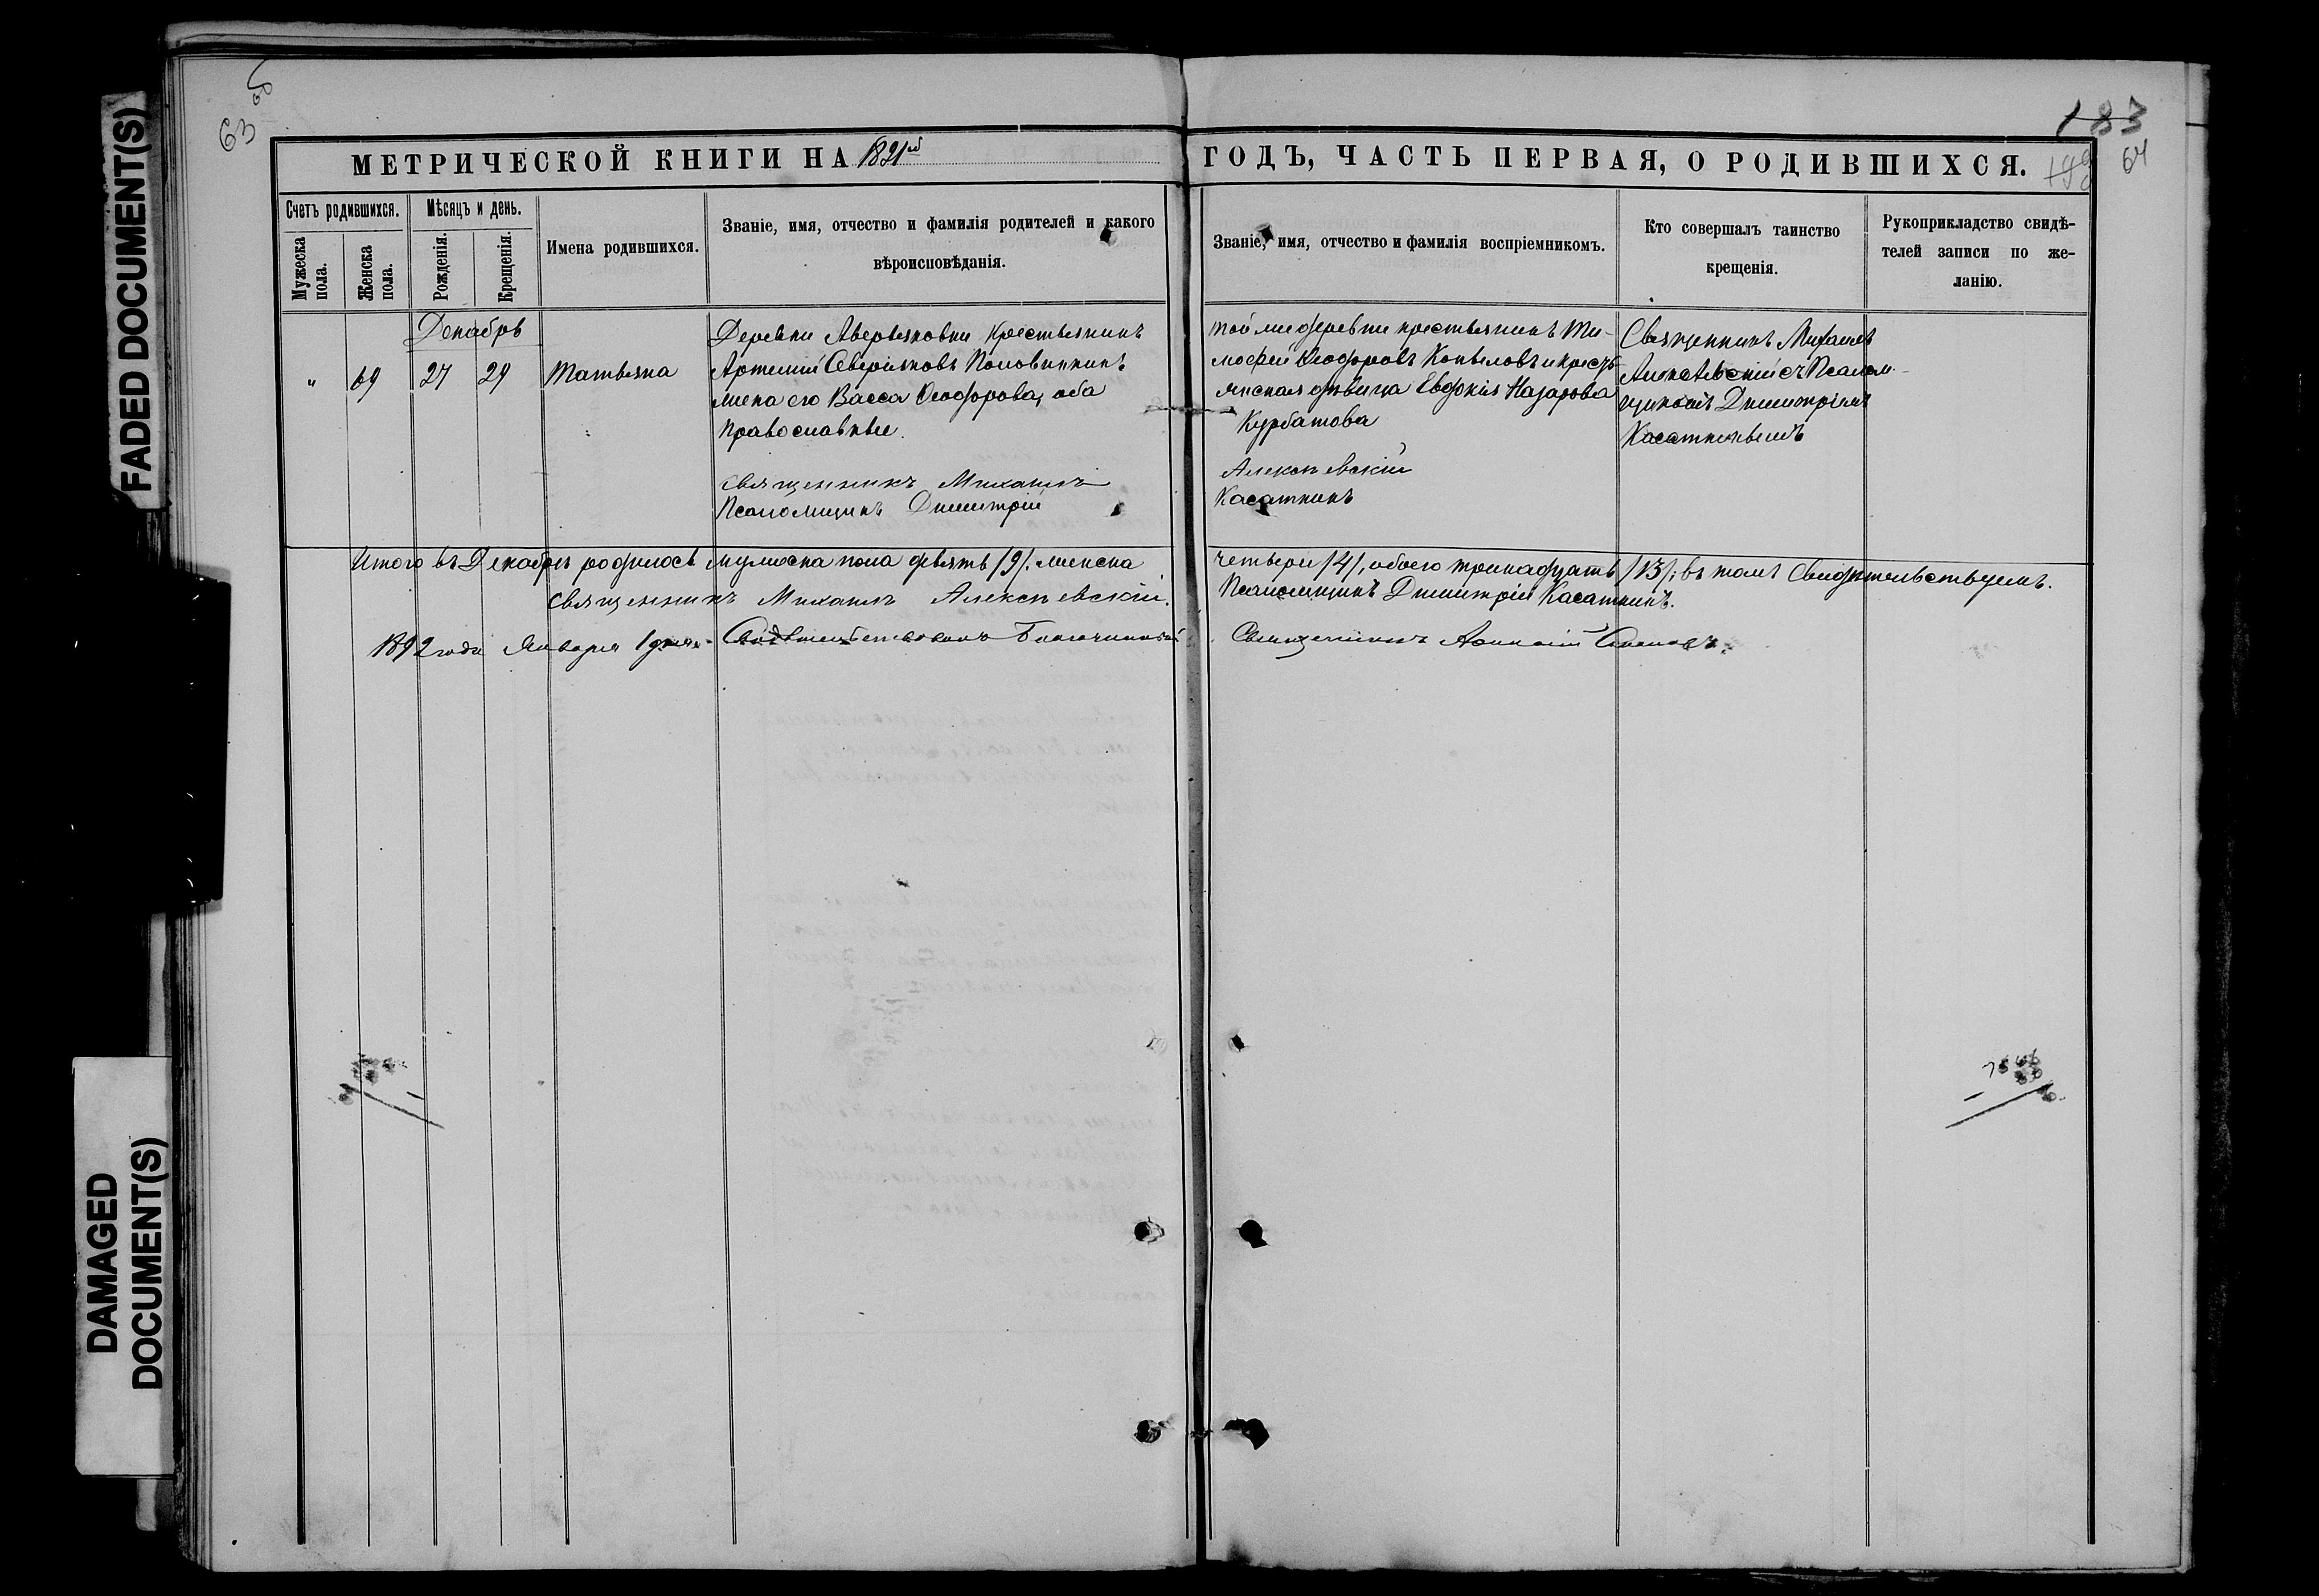 FADED DOCUMENT(S)
DAMAGED
DOCUMENT(S)
63
183
64
МЕТРИЧЕСКОЙ КНИГИ НА 1891й ГОДЪ, ЧАСТЬ ПЕРВАЯ, О РОДИВШИХСЯ.
Счетъ родившихся.
Мужеска пола.
Женска пола.
Мѣсяцъ и день.
Рожденія.
Крещенія.
Имена родившихся.
Званіе, имя, отчество и фамилія родителей и какого
вѣроисповѣданія.
Званіе, имя, отчество и фамилія воспріемникомъ.
Кто совершалъ таинство
крещенія.
Рукоприкладство свидѣ-
телей записи по же-
ланію.
Декабрь
" 69 27 29 Татьяна
Деревни Аверьяновки крестьянинъ
Артемій Северіяновъ Половинкинъ
жена его Васса Ѳеодорова, оба
православные.
Священникъ Михаилъ
Псаломщикъ Димитрій
той же деревни крестьянинъ Ти-
мофей Ѳеодоровъ Копыловъ и кресть-
янская дѣвица Евдокія Назарова
Курбатова
Алексѣевскій
Касаткинъ
Священникъ Михаилъ
Алексѣевскій съ Псалом-
щикомъ Димитріемъ
Касаткинымъ
Итого въ Декабрѣ родилось мужеска пола девять /9/. женска четверо /4/, обоего тринадцать /13/; въ томъ свидѣтельствуемъ.
Священникъ Михаилъ Алексѣевскій. Псаломщикъ Димитрій Касаткинъ.
1892 года Января 1 дня. Свидѣтельствовалъ Благочинный Священникъ